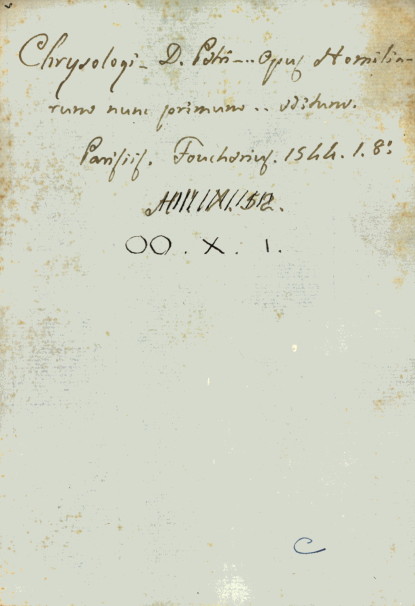 Chrysologi - D. Petri -.. Opus Homilia-
rum nunc primum .. editum.
Parisiis. Foucherius. 1544. 1. 8º
OO. X. 1.
C